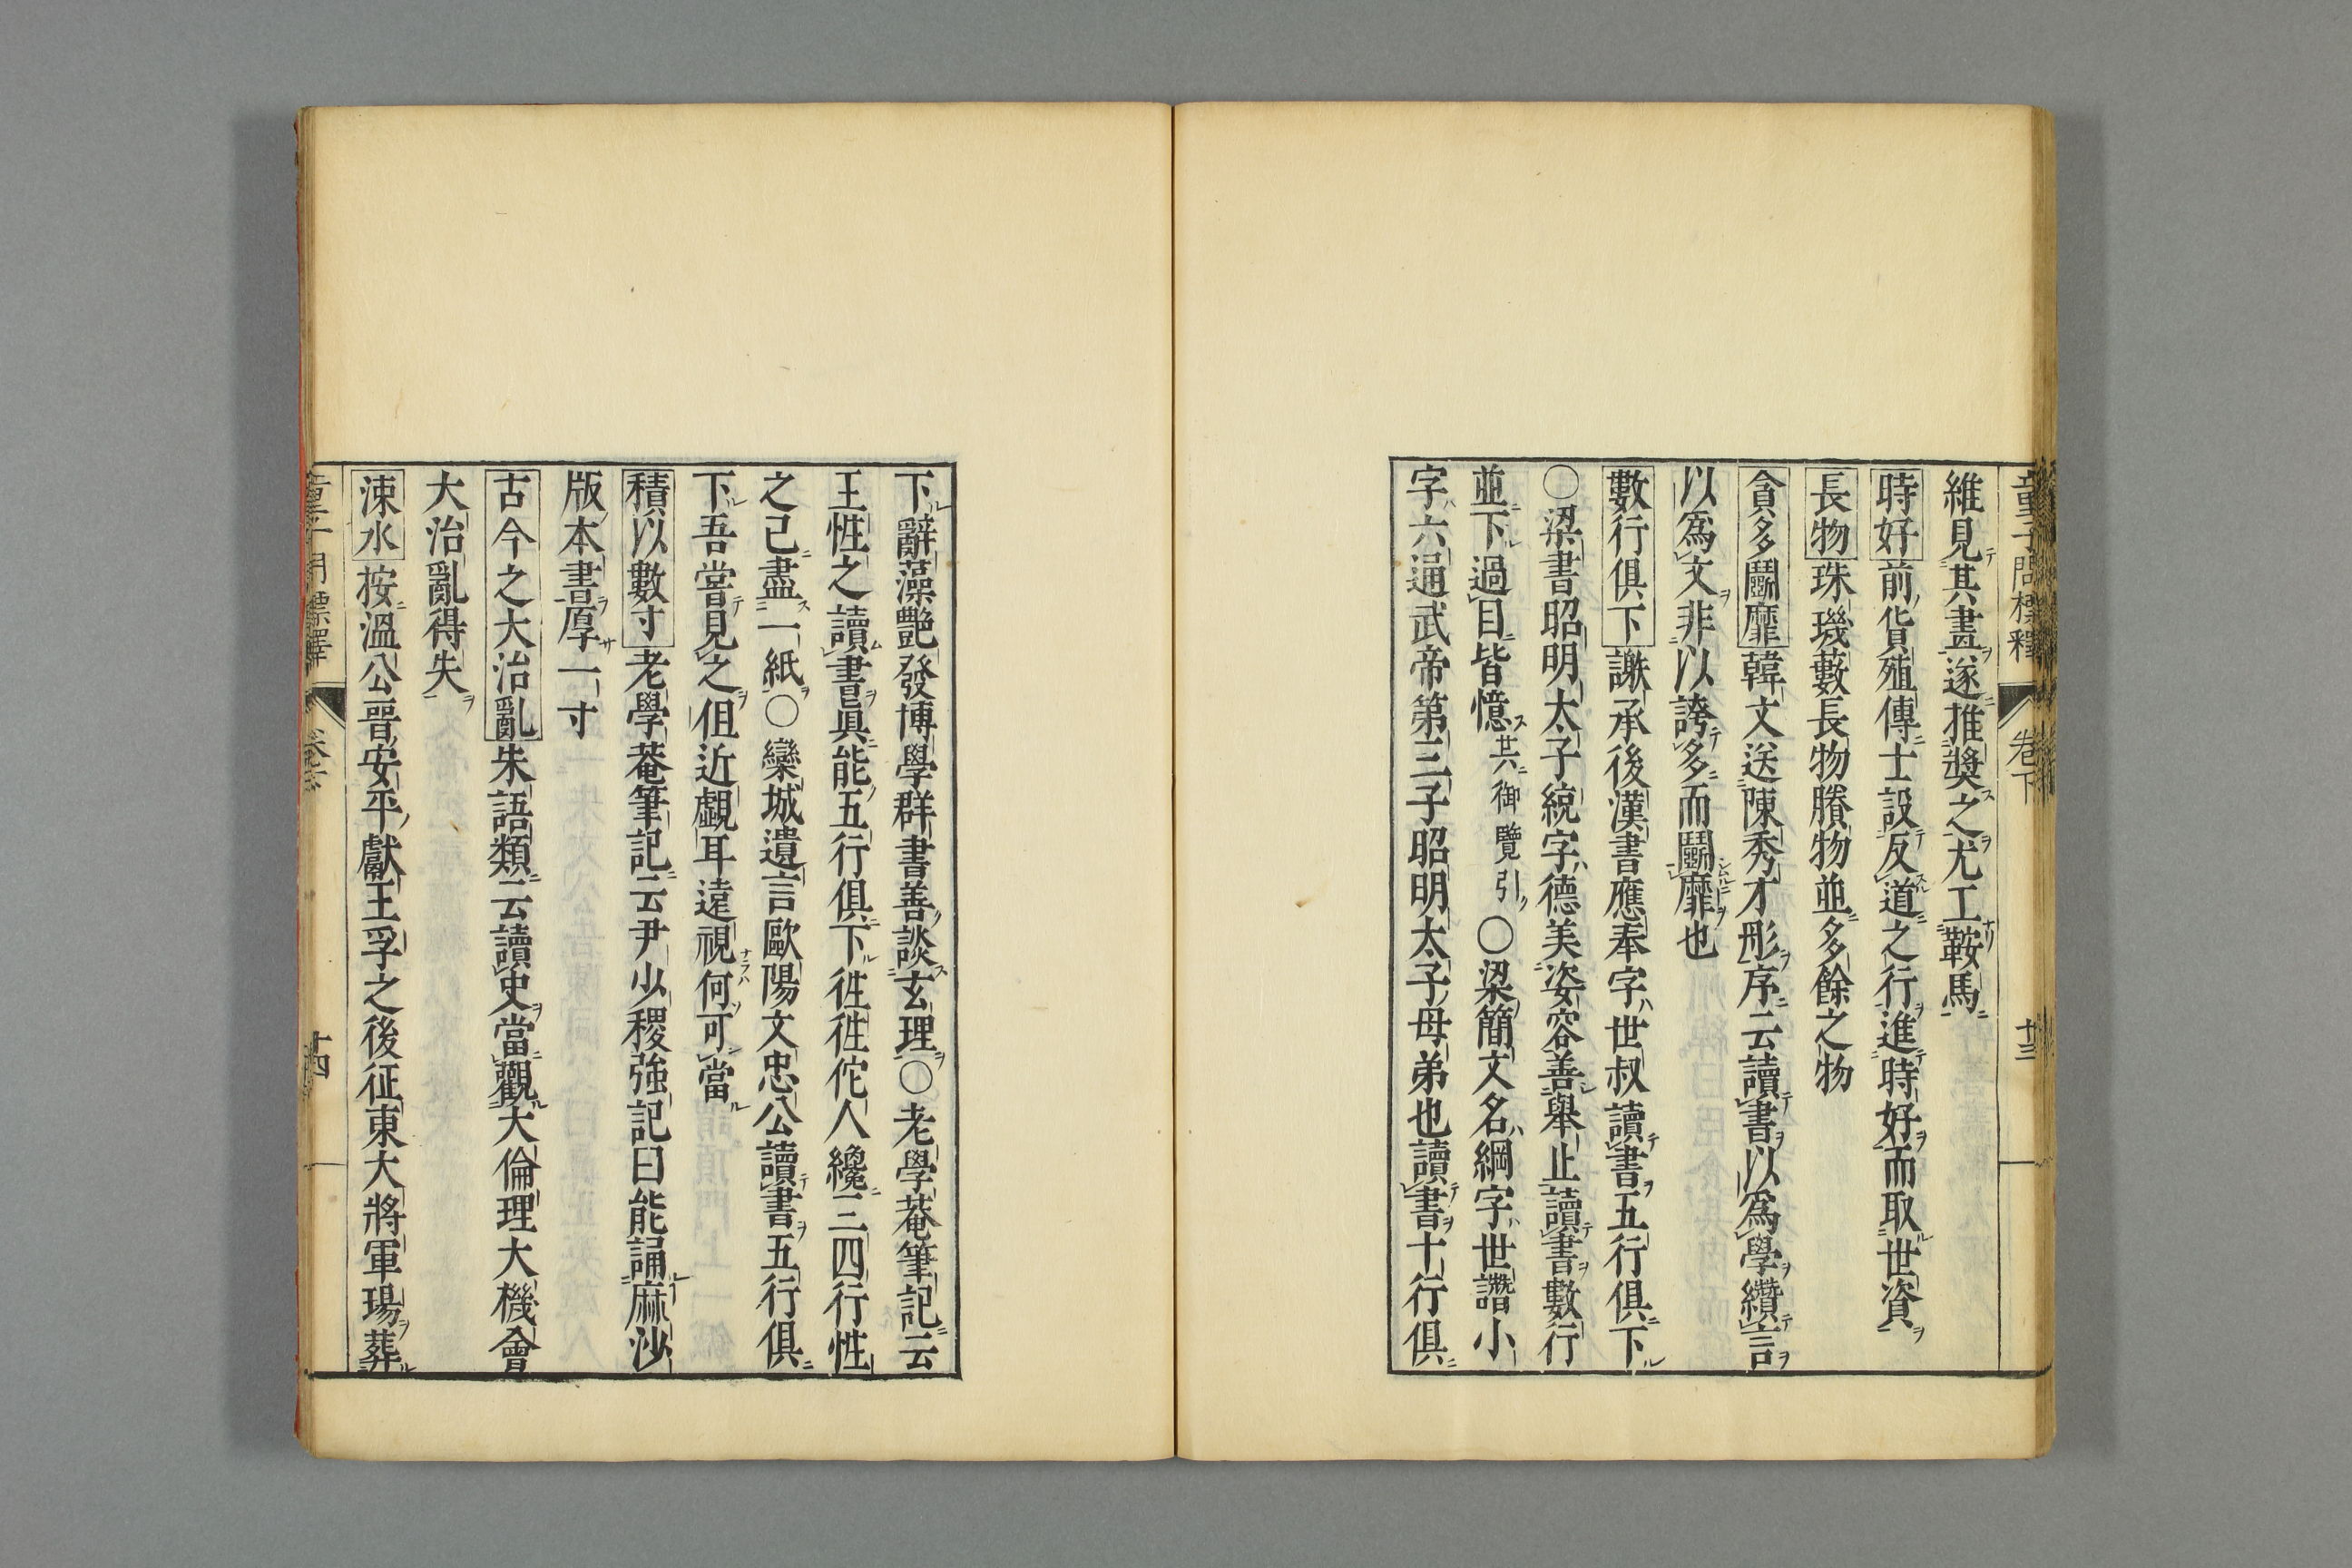 童子問標釋 卷下 廿三
維見其畫遂推奬之尤工鞍馬
時好前貨殖傳士設反道之行進時好而取世資
長物珠璣藪長物賸物並多餘之物
貪多鬬靡韓文送陳秀才彤序云讀書以爲學纘言
以爲文非以誇多而鬬靡也
數行俱下謝承後漢書應奉字世叔讀書五行俱下
○梁書昭明太子統字德美姿容善舉止讀書數行
並下過目皆憶共御覽引○梁簡文名綱字世讚小
字六通武帝第三子昭明太子母弟也讀書十行俱
下辭藻艷發博學群書善談玄理○老學菴筆記云
王性之讀書眞能五行俱下徃徃佗人纔三四行性
之已盡一紙○欒城遺言歐陽文忠公讀書五行俱
下吾嘗見之但近覷耳遠視何可當
積以數寸老學菴筆記云尹少稷強記日能誦麻沙
版本書厚一寸
古今之大治亂朱語類云讀史當觀大倫理大機會
大治亂得失
涑水按溫公晉安平獻王孚之後征東大將軍瑒葬
童子問標釋 卷下 廿四